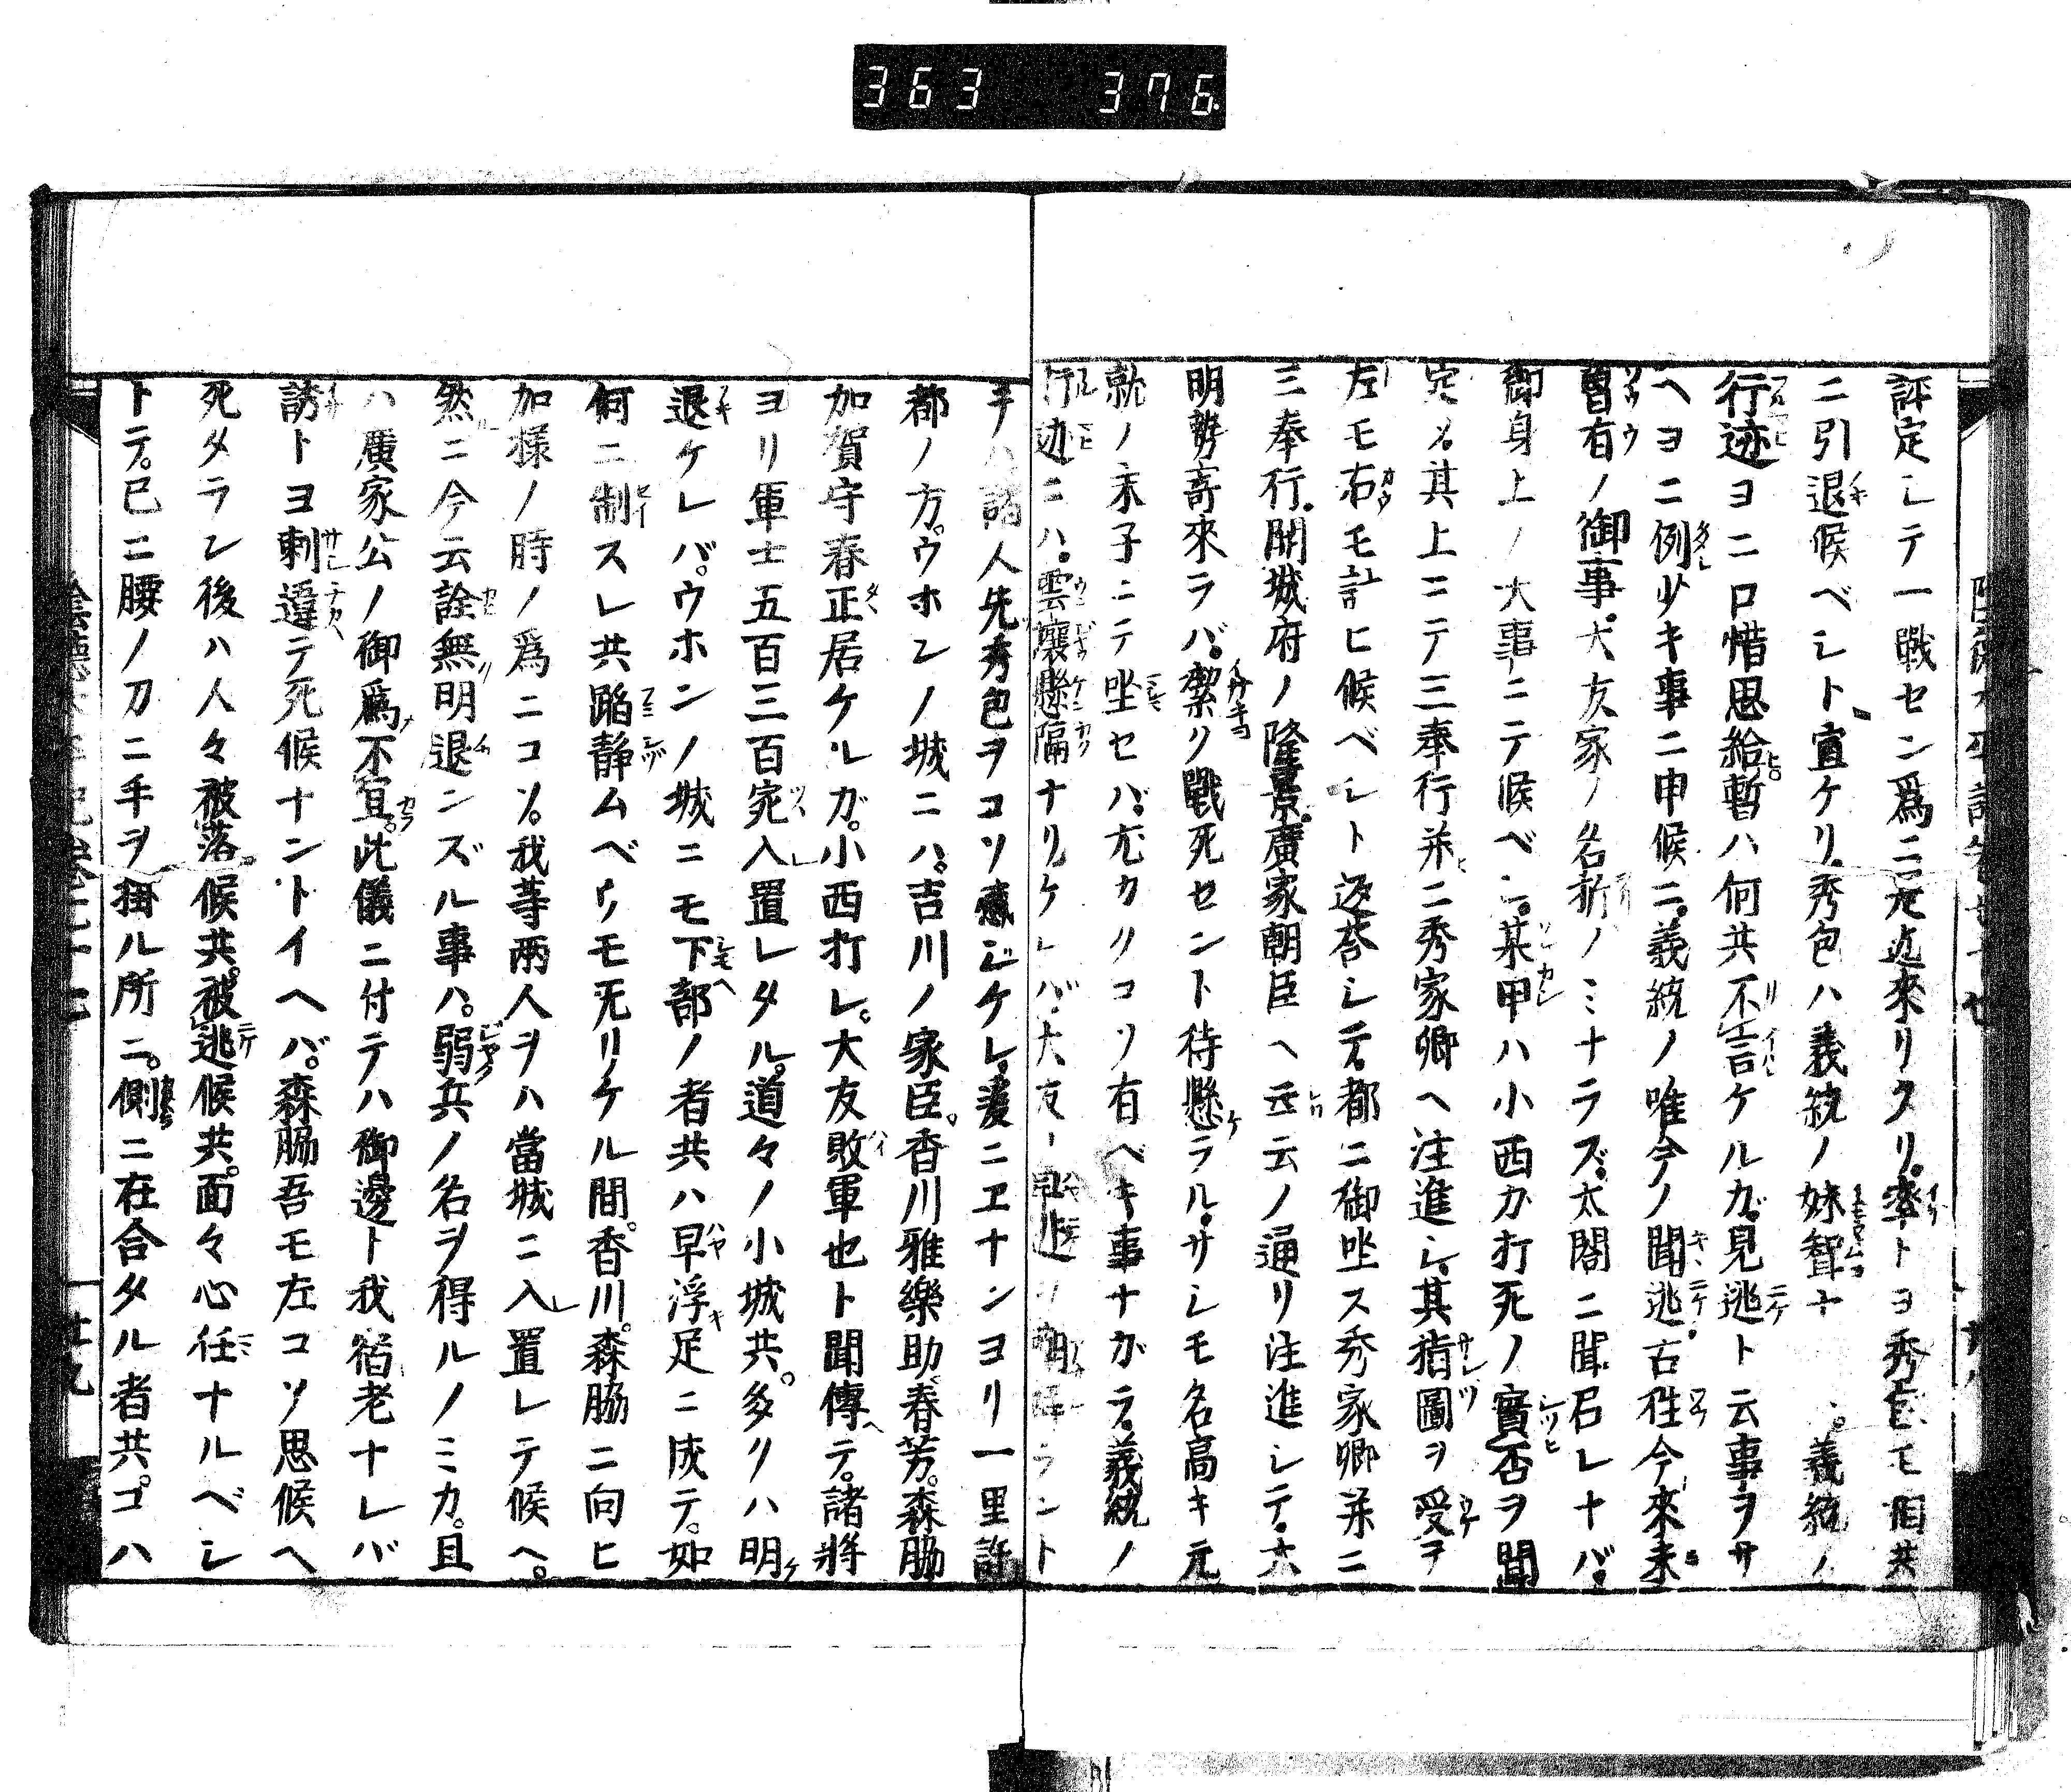 363 376
評定シテ一戰セン爲ニ是迄來リタリ。率トヨ秀包モ相共
ニ引退候ベシト宣ケリ。秀包ハ義統ノ妹聟ナ 。義統ノ
行迹ヨニ口惜思給暫ハ何共不言ケルガ。見逃ト云事ヲサ
ヘヨニ例少キ事ニ申候ニ。義統ノ唯今ノ聞逃。古徃今來未
曽有ノ御事。大友家ノ名折ノミナラズ。太閤ニ聞召レナバ。
御身上ノ大事ニテ候ベシ。某甲ハ小西カ打死ノ實否ヲ聞
定メ。其上ニテ三奉行并ニ秀家卿ヘ注進シ。其指圖ヲ受テ
左モ右モ計ヒ候ベシト返荅シテ。都ニ御坐ス秀家卿并ニ
三奉行。開城府ノ隆景。廣家朝臣ヘ云云ノ通リ注進シテ。大
明勢寄來ラバ。潔リ戰死セント待懸ラル。サシモ名高キ元
就ノ末子ニテ坐セハ。尤カクコソ有ベキ事ナガラ。義統ノ
行迹ニハ。雲壤懸隔ナリケレバ。大友 ラント
手ノ諸人先秀包ヲコソ感ジケレ。爰ニヱナンヨリ一里許
都ノ方。ウホンノ城ニハ。吉川ノ家臣。香川雅樂助春芳。森脇
加賀守春正居ケルガ。小西打レ。大友敗軍也ト聞傳テ。諸將
ヨリ軍士五百三百宛入置レタル。道々ノ小城共。多クハ明
退ケレバ。ウホンノ城ニモ下部ノ者共ハ早浮足ニ成テ。如
何ニ制スレ共蹈靜ムベウモ无リケル間。香川。森脇ニ向ヒ
加様ノ時ノ爲ニコソ。我等兩人ヲハ當城ニ入置レテ候ヘ。
然ニ今云詮無明退ンズル事ハ。弱兵ノ名ヲ得ルノミカ。且
ハ廣家公ノ御爲不宜。此儀ニ付テハ御邊ト我宿老ナレバ
誘トヨ刺違テ死候ナントイヘバ。森脇吾モ左コソ思候ヘ
死タラン後ハ人々被落候共。被逃候共。面々心任ナルベシ
トテ。已ニ腰ノ刀ニ手ヲ掛ル所ニ。側ニ在合タル者共。コハ